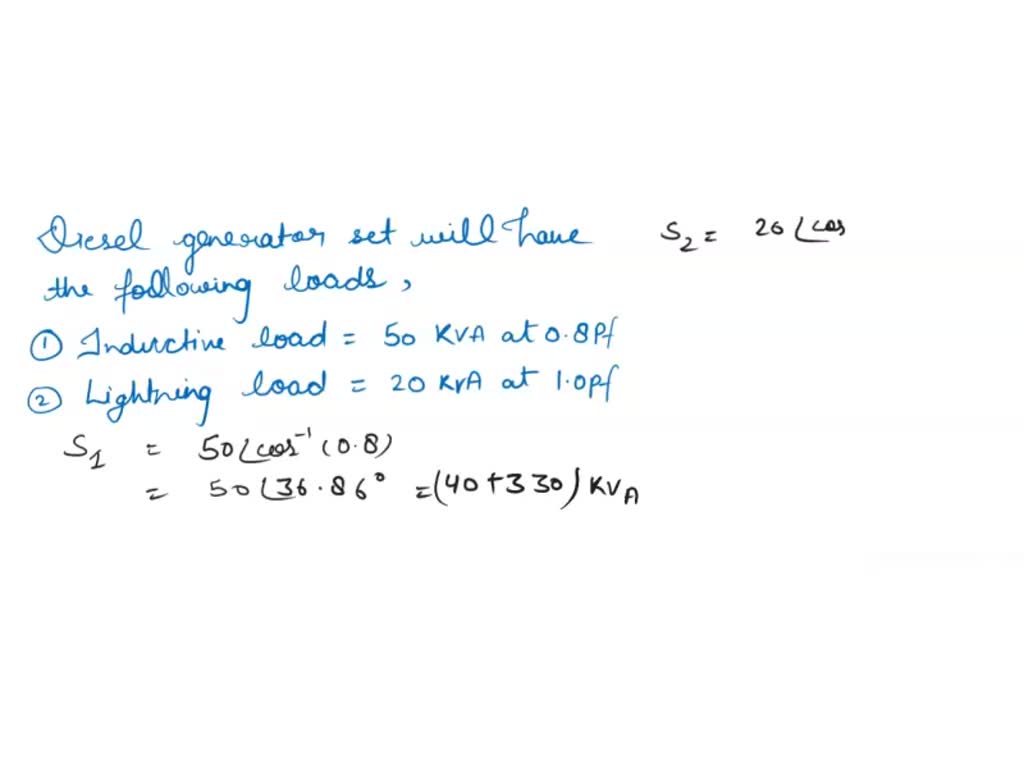 Diesel generator set will have
the following loads,
① Inductive load = 50 KVA at 0.8 Pf
② Lightning load = 20 KVA at 1.0 pf
S1 = 50∠cos⁻¹(0.8)
= 50∠36.86° =(40+330) KVA
S2 = 20∠cos